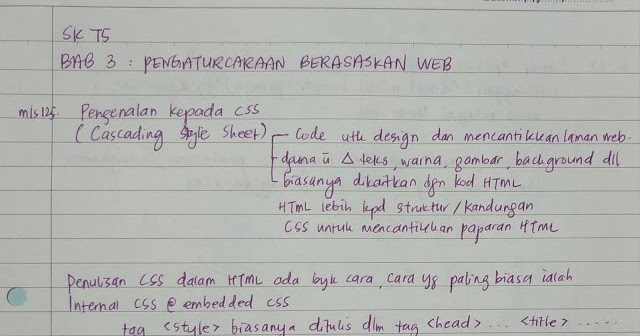 SK T5
BAB 3 : PENGATURCARAAN BERASASKAN WEB
m/s 125. Pengenalan kepada CSS
(Cascading Style Sheet) - Code utk design dan mencantikkan laman web.
- guna u Δ teks, warna, gambar, background dll
- biasanya dikaitkan dgn kod HTML
HTML lebih kpd struktur/kandungan
CSS untuk mencantikkan paparan HTML
Penulisan CSS dalam HTML ada byk cara, cara yg paling biasa ialah
Internal CSS @ embedded CSS
tag <style> biasanya ditulis dlm tag <head> ... <title> .....